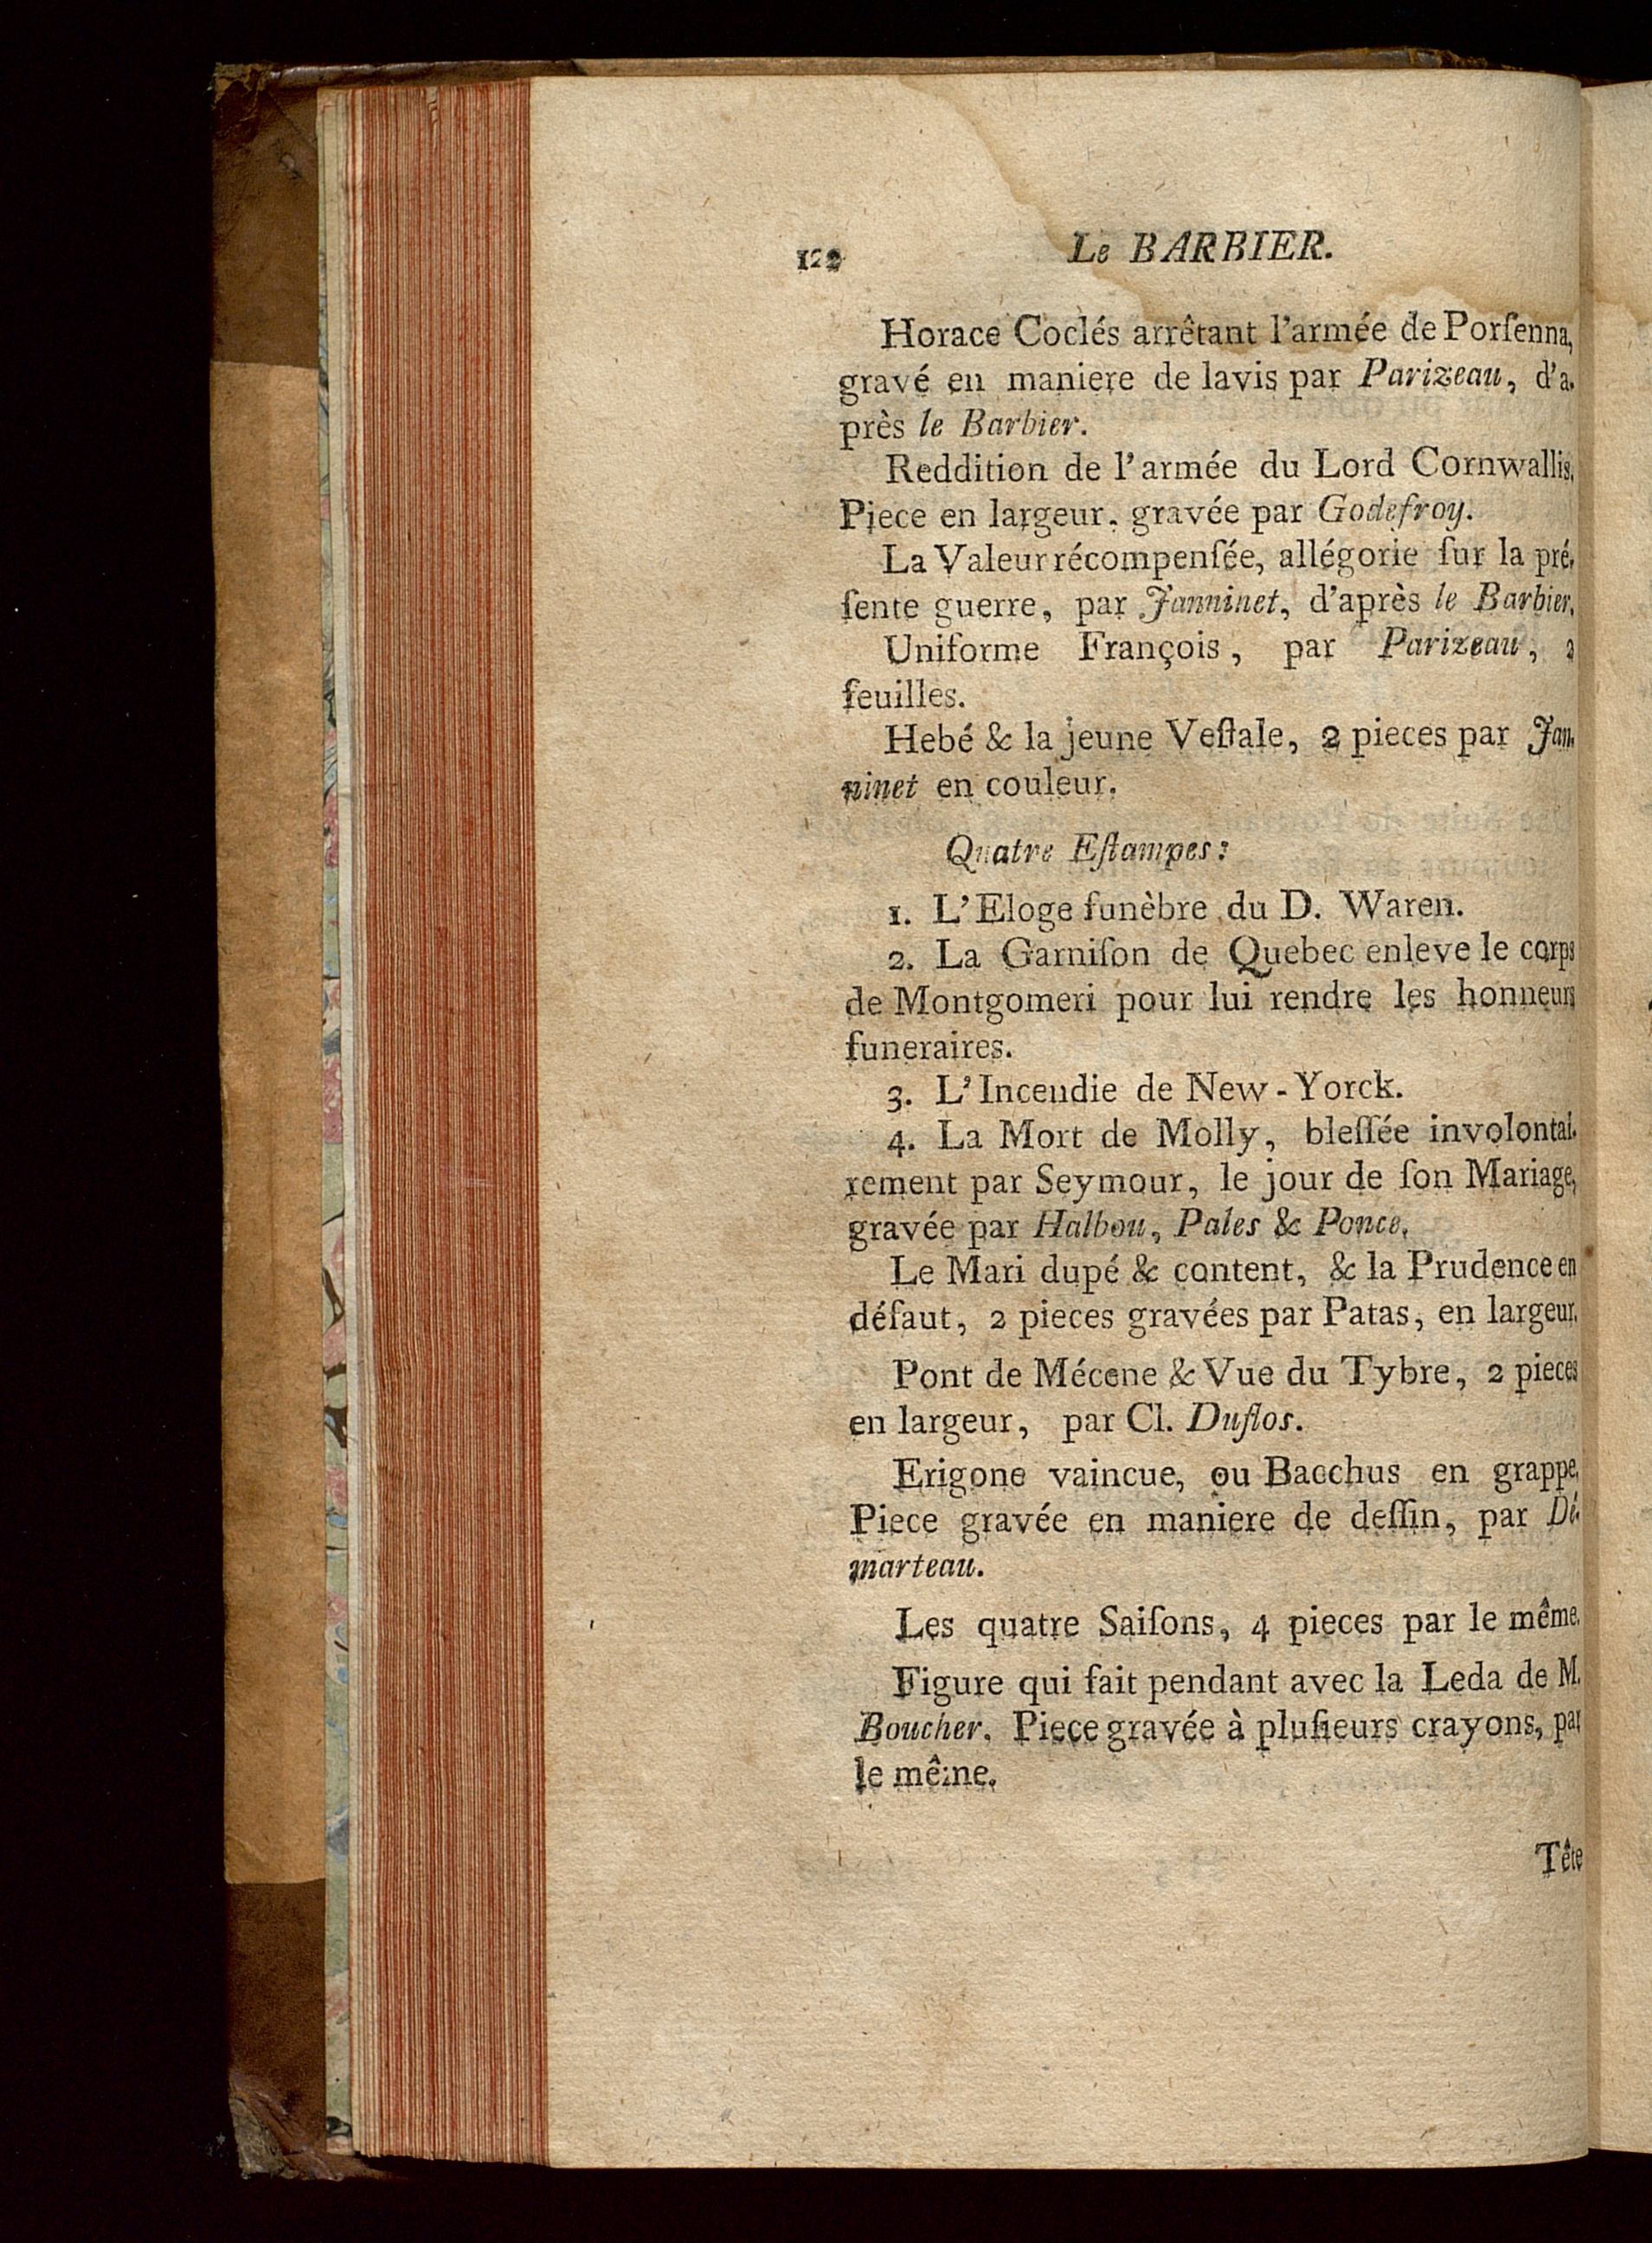 122 Le BARBIER.
Horace Coclés arrêtant l'armée de Porſenna,
gravé en maniere de lavis par Parizeau, d'a-
près le Barbier.
Reddition de l'armée du Lord Cornwallis.
Piece en largeur, gravée par Godefroy.
La Valeur récompenſée, allégorie ſur la pré-
ſente guerre, par Janninet, d'après le Barbier.
Uniforme François, par Parizeau, 2
feuilles.
Hebé & la jeune Veſtale, 2 pieces par Jan-
ninet en couleur.
Quatre Eſtampes:
1. L'Eloge funèbre du D. Waren.
2. La Garniſon de Quebec enleve le corps
de Montgomeri pour lui rendre les honneurs
funeraires.
3. L'Incendie de New-Yorck.
4. La Mort de Molly, bleſſée involontai-
rement par Seymour, le jour de ſon Mariage,
gravée par Halbou, Pales & Ponce.
Le Mari dupé & content, & la Prudence en
défaut, 2 pieces gravées par Patas, en largeur.
Pont de Mécene & Vue du Tybre, 2 pieces
en largeur, par Cl. Duflos.
Erigone vaincue, ou Bacchus en grappe.
Piece gravée en maniere de deſſin, par Dé-
marteau.
Les quatre Saiſons, 4 pieces par le même.
Figure qui fait pendant avec la Leda de M.
Boucher. Piece gravée à pluſieurs crayons, par
le même.
Tête